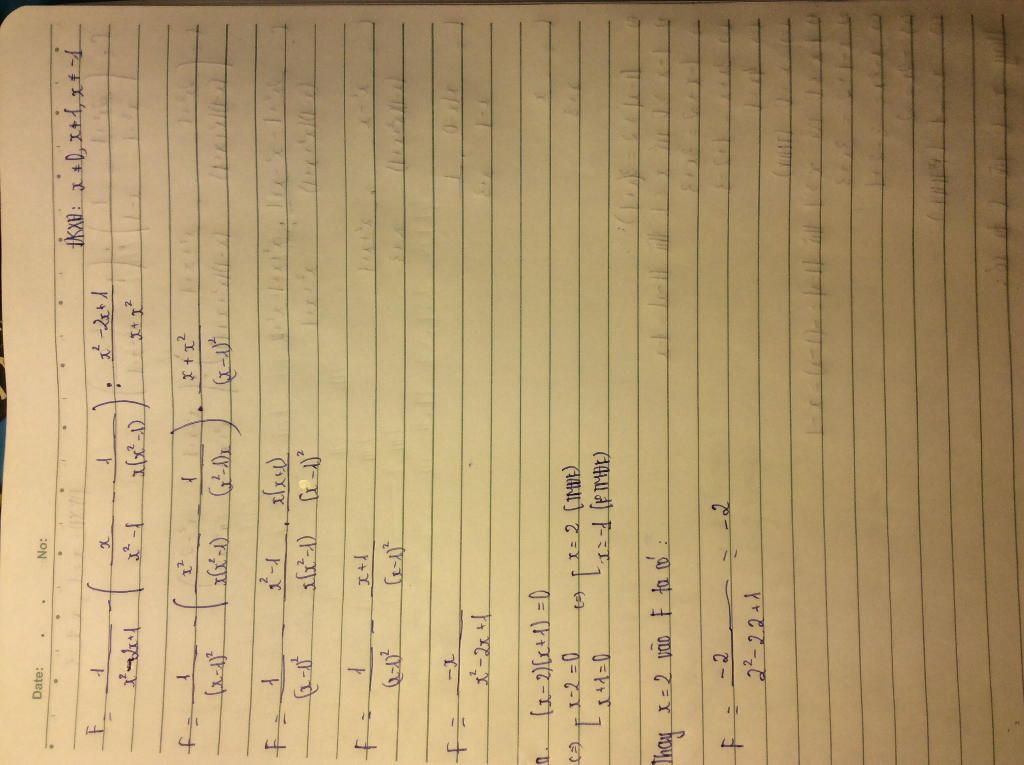 Date: No:
ĐKXĐ: x ≠ 0, x ≠ 1, x ≠ -1
F = 1/(x² - 2x + 1) - (x/(x² - 1) - 1/(x(x² - 1))) : (x² - 2x + 1)/(x + x²)
F = 1/(x - 1)² - (x²/(x(x² - 1)) - 1/((x² - 1)x)) . (x + x²)/(x - 1)²
F = 1/(x - 1)² - (x² - 1)/(x(x² - 1)) . x(x + 1)/(x - 1)²
F = 1/(x - 1)² - (x + 1)/(x - 1)²
F = -x/(x² - 2x + 1)
a. (x - 2)(x + 1) = 0
<=> [ x - 2 = 0 <=> [ x = 2 (TMĐK)
x + 1 = 0 x = -1 (KTMĐK)
Thay x = 2 vào F ta có:
F = -2/(2² - 2.2 + 1) = -2